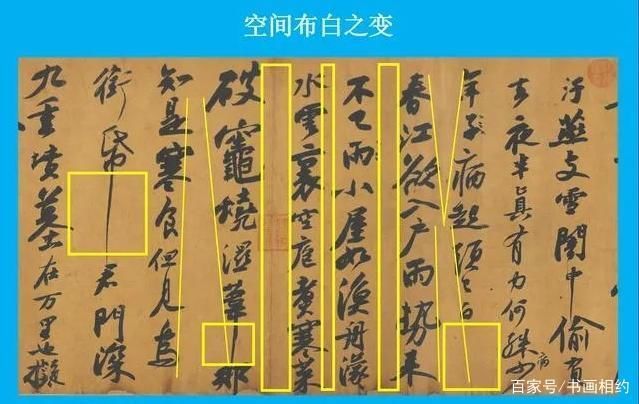 空间布白之变
汙燕支雪闇中偷負
去夜半真有力何殊少病
年子病起須已白
春江欲入戶雨勢來
不已雨小屋如漁舟濛
水雲裏空庖煮寒菜
破竈燒濕葦那
知是寒食但見烏
銜帋君門深
九重墳墓在万里也擬
百家号/书画相约